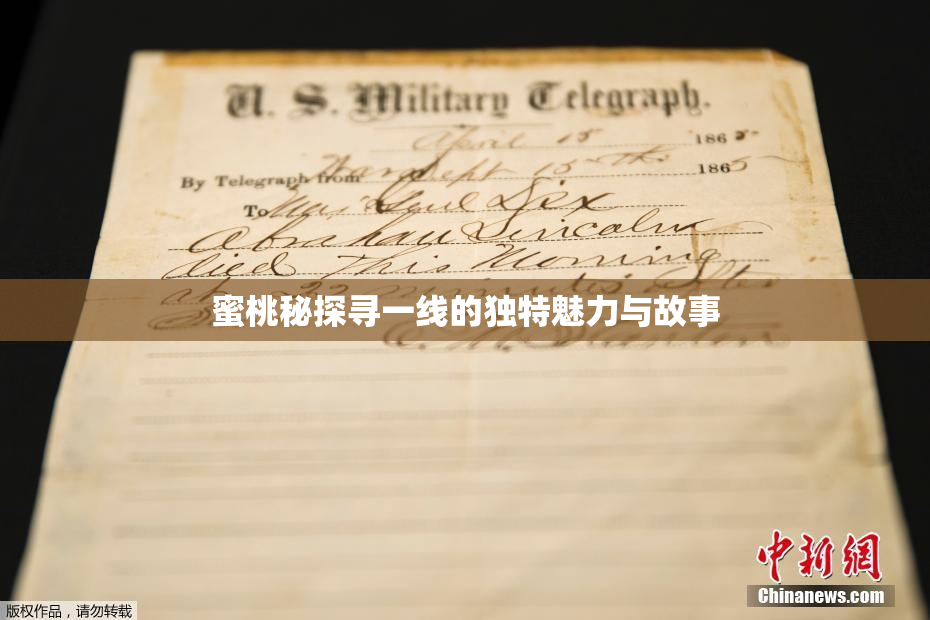 U. S. Military Telegraph.
April 15 1865
By Telegraph from War Dept 15th 1865
To Maj Genl Dix
Abraham Lincoln
died This Morning
at 22 minutes after
蜜桃秘探寻一线的独特魅力与故事
Stanton
中新網
Chinanews.com
版权作品，请勿转载